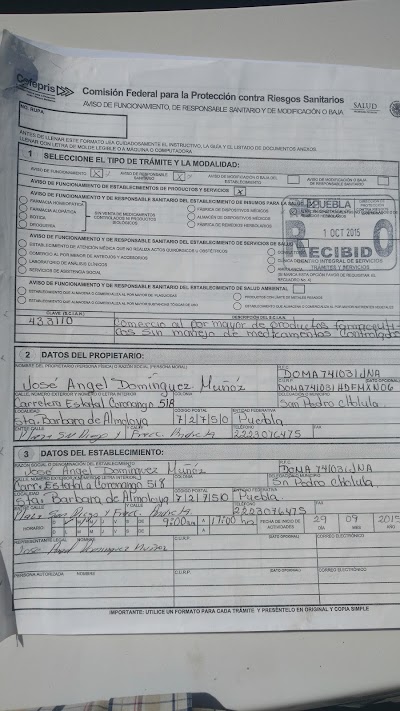 Cofepris
Comisión Federal para la Protección contra Riesgos Sanitarios
SALUD
AVISO DE FUNCIONAMIENTO, DE RESPONSABLE SANITARIO Y DE MODIFICACIÓN O BAJA
NO. RUPA
ANTES DE LLENAR ESTE FORMATO LEA CUIDADOSAMENTE EL INSTRUCTIVO, LA GUÍA Y EL LISTADO DE DOCUMENTOS ANEXOS.
LLENAR CON LETRA DE MOLDE LEGIBLE O A MÁQUINA O COMPUTADORA
1 SELECCIONE EL TIPO DE TRÁMITE Y LA MODALIDAD:
AVISO DE FUNCIONAMIENTO X AVISO DE RESPONSABLE SANITARIO X AVISO DE MODIFICACIÓN O BAJA DEL ESTABLECIMIENTO AVISO DE MODIFICACIÓN O BAJA DE RESPONSABLE SANITARIO
AVISO DE FUNCIONAMIENTO DE ESTABLECIMIENTOS DE PRODUCTOS Y SERVICIOS X
AVISO DE FUNCIONAMIENTO Y DE RESPONSABLE SANITARIO DEL ESTABLECIMIENTO DE INSUMOS PARA LA SALUD
FARMACIA HOMEOPÁTICA
FARMACIA ALOPÁTICA
BOTICA
DROGUERÍA
SIN VENTA DE MEDICAMENTOS CONTROLADOS O PRODUCTOS BIOLÓGICOS
FÁBRICA DE DISPOSITIVOS MÉDICOS
ALMACÉN DE DISPOSITIVOS MÉDICOS
FÁBRICA DE REMEDIOS HERBOLARIOS
PUEBLA
1 OCT 2015
RECIBIDO
CENTRO INTEGRAL DE SERVICIOS
TRÁMITES Y SERVICIOS
AVISO DE FUNCIONAMIENTO Y DE RESPONSABLE SANITARIO DEL ESTABLECIMIENTO DE SERVICIOS DE SALUD
ESTABLECIMIENTO DE ATENCIÓN MÉDICA QUE NO REALIZA ACTOS QUIRÚRGICOS U OBSTÉTRICOS
COMERCIO AL POR MENOR DE ANTEOJOS Y ACCESORIOS
LABORATORIO DE ANÁLISIS CLÍNICOS
SERVICIOS DE ASISTENCIA SOCIAL
AVISO DE FUNCIONAMIENTO Y DE RESPONSABLE SANITARIO DEL ESTABLECIMIENTO DE SALUD AMBIENTAL
CLAVE (S.C.I.A.N.) DESCRIPCIÓN DEL S.C.I.A.N.
433110 Comercio al por mayor de productos farmaceuti-
cos sin manejo de medicamentos controlados
2 DATOS DEL PROPIETARIO:
NOMBRE DEL PROPIETARIO (PERSONA FÍSICA) O RAZÓN SOCIAL (PERSONA MORAL) R.F.C.
José Angel Domínguez Muñoz DOMA741031JNA
C.U.R.P. (DATO OPCIONAL)
DOMA741031HDFMXN06
CALLE, NÚMERO EXTERIOR Y NÚMERO O LETRA INTERIOR COLONIA DELEGACIÓN O MUNICIPIO
Carretera Estatal Coronango 518 San Pedro Cholula
LOCALIDAD CÓDIGO POSTAL ENTIDAD FEDERATIVA
Sta. Bárbara de Almoloya 72750 Puebla
ENTRE CALLE Y CALLE TELÉFONO
2223076475
3 DATOS DEL ESTABLECIMIENTO:
RAZÓN SOCIAL O DENOMINACIÓN DEL ESTABLECIMIENTO R.F.C.
José Angel Domínguez Muñoz DOMA741031JNA
CALLE, NÚMERO EXTERIOR Y NÚMERO O LETRA INTERIOR COLONIA DELEGACIÓN O MUNICIPIO
Carr. Estatal Coronango 518 Sn Pedro Cholula
LOCALIDAD CÓDIGO POSTAL ENTIDAD FEDERATIVA
Sta. Barbara de Almoloya 72750 Puebla
ENTRE CALLE Y CALLE TELÉFONO
2223076475
HORARIO D L M M J V S DE 9:00 hrs A 17:00 hrs FECHA DE INICIO DE ACTIVIDADES 29 09 2015
DÍA MES AÑO
REPRESENTANTE LEGAL NOMBRE C.U.R.P. (DATO OPCIONAL) CORREO ELECTRÓNICO
José Angel Dominguez Muñoz
PERSONA AUTORIZADA NOMBRE C.U.R.P. (DATO OPCIONAL) CORREO ELECTRÓNICO
IMPORTANTE: UTILICE UN FORMATO PARA CADA TRÁMITE Y PRESÉNTELO EN ORIGINAL Y COPIA SIMPLE